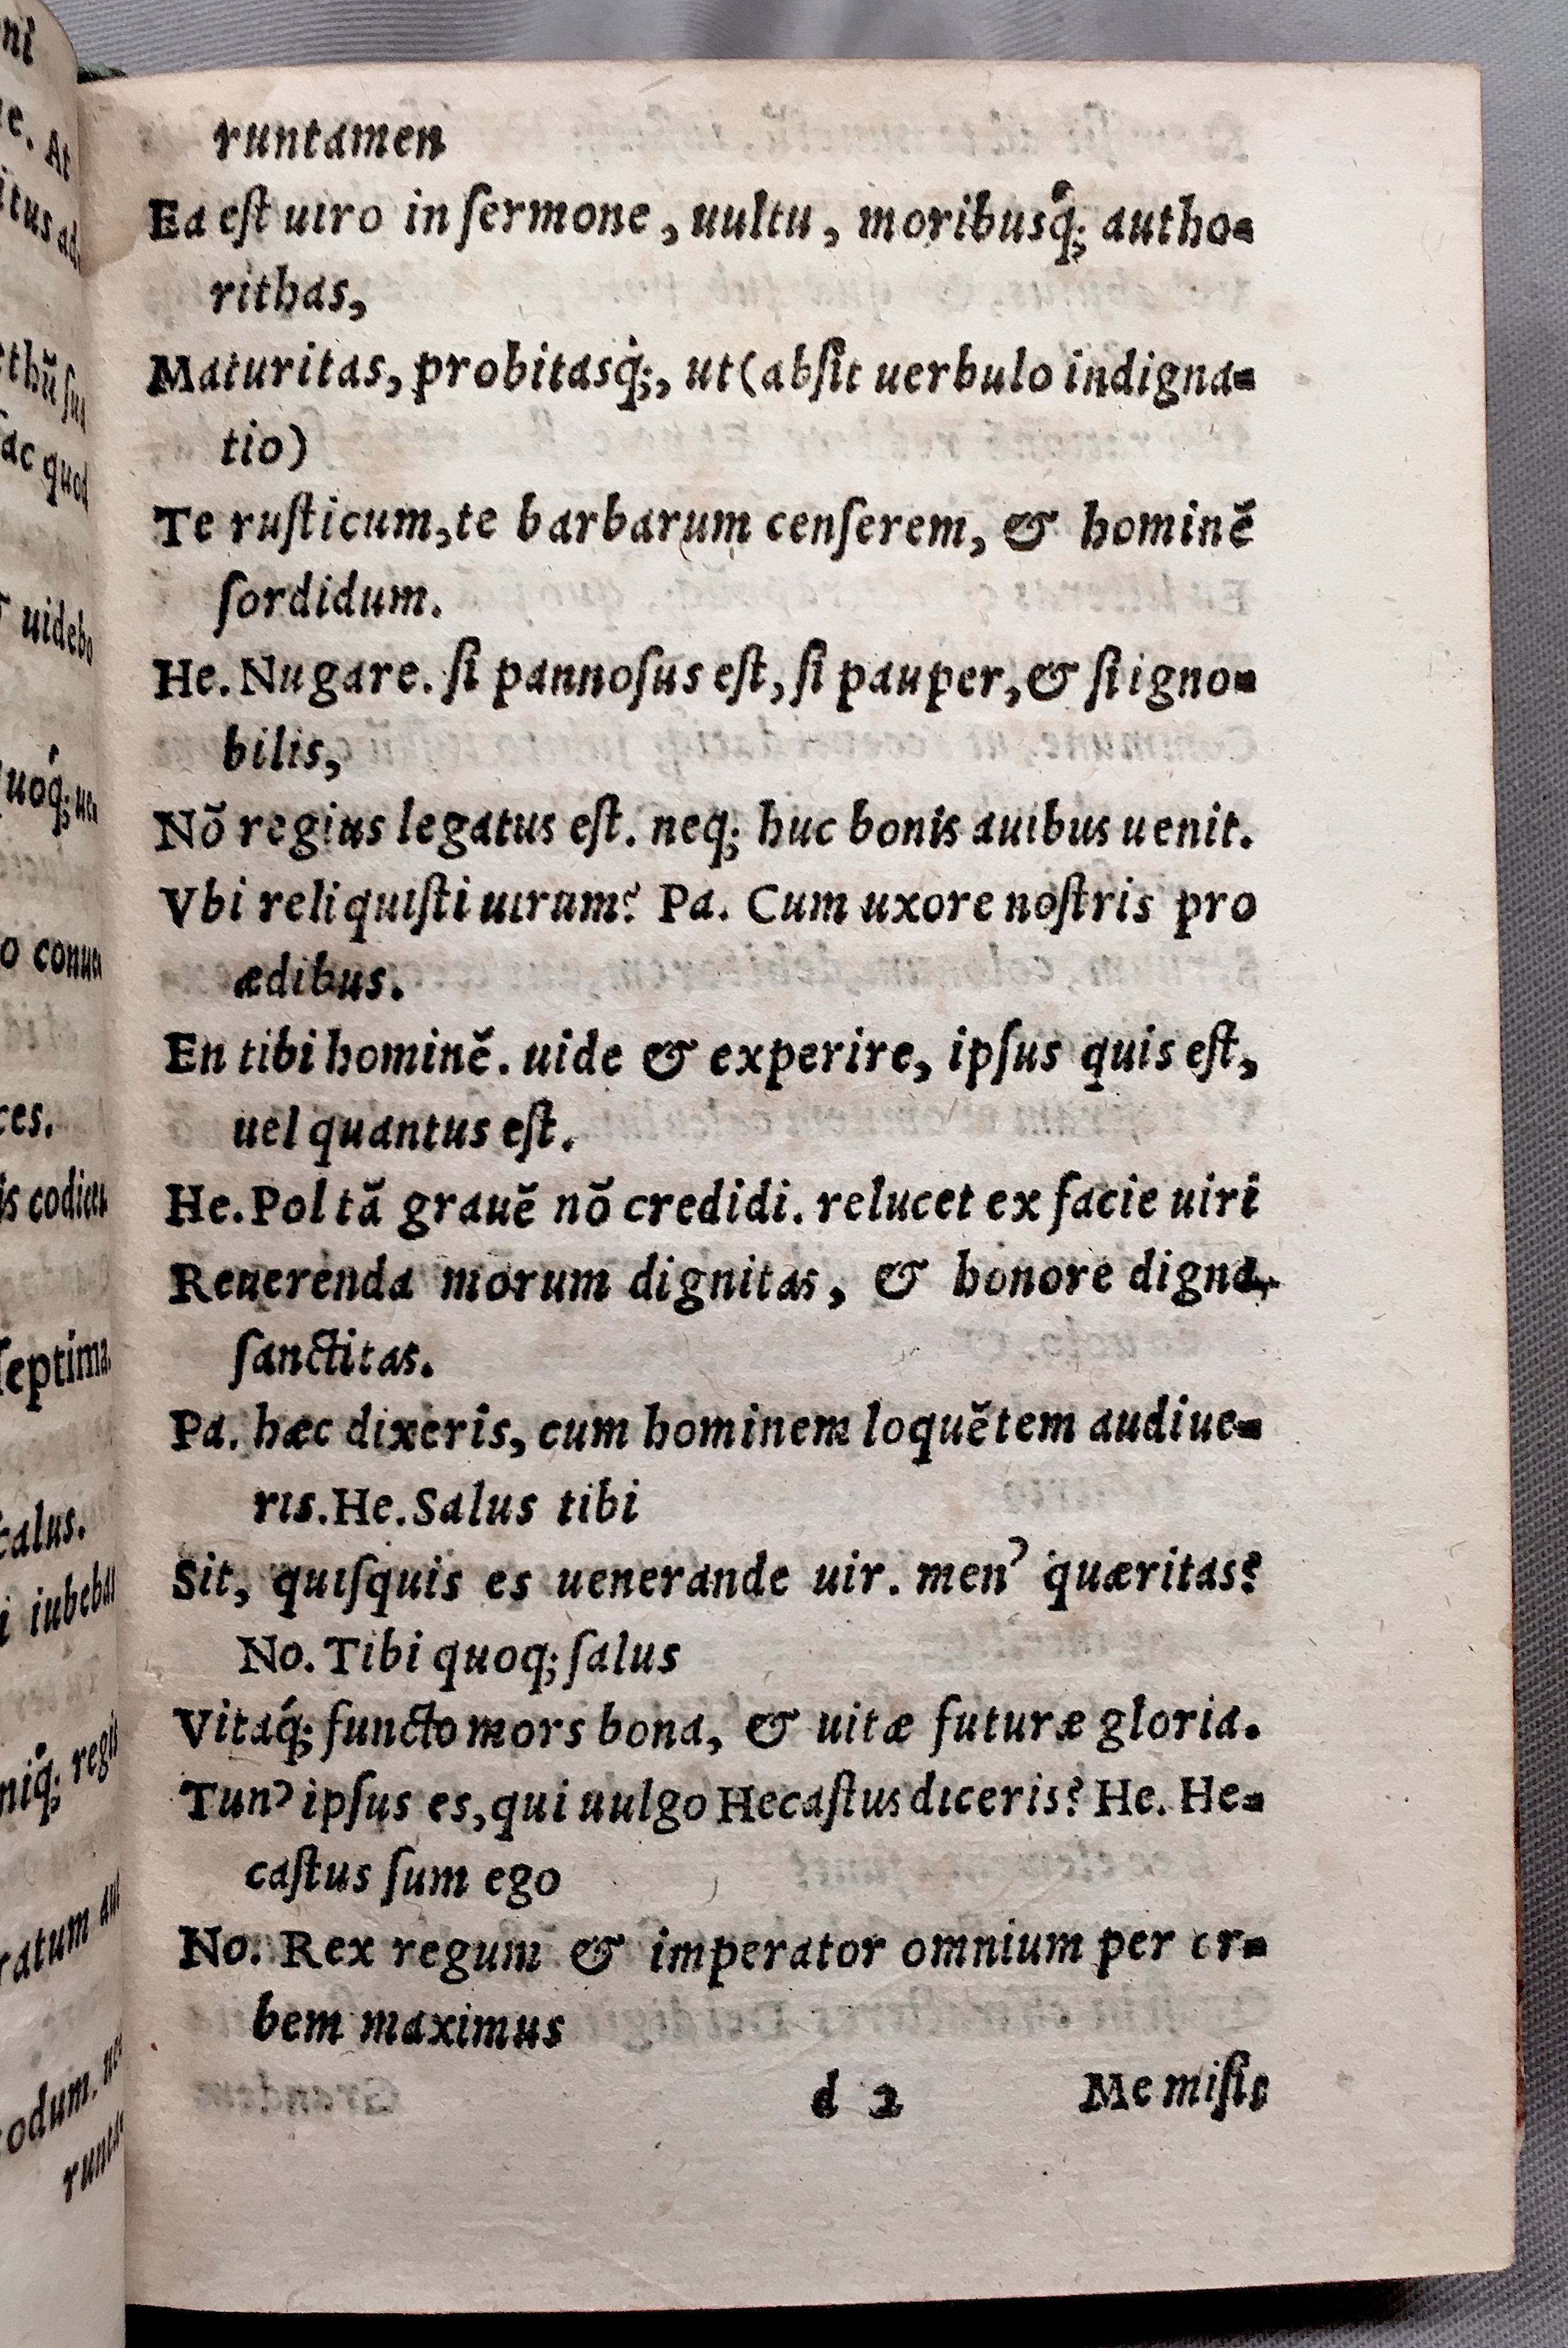 runtamen
Ea eſt uiro in ſermone, uultu, moribusq́; autho-
rithas,
Maturitas, probitasq́;, ut (abſit uerbulo indigna-
tio)
Te ruſticum, te barbarum cenſerem, & hominẽ
ſordidum.
He. Nugare. ſi pannoſus eſt, ſi pauper, & ſi igno-
bilis,
Nõ regius legatus eſt. neq; huc bonis auibus uenit.
Vbi reliquiſti uirum? Pa. Cum uxore noſtris pro
ædibus.
En tibi hominẽ. uide & experire, ipſus quis eſt,
uel quantus eſt.
He. Pol tã grauẽ nõ credidi. relucet ex facie uiri
Reuerenda morum dignitas, & honore digna,
ſanctitas.
Pa. hæc dixeris, cum hominem loquẽtem audiue-
ris. He. Salus tibi
Sit, quiſquis es uenerande uir. men' quæritas?
No. Tibi quoq; ſalus
Vitaq́; functo mors bona, & uitæ futuræ gloria.
Tun' ipſus es, qui uulgo Hecaſtus diceris? He. He-
caſtus ſum ego
No. Rex regum & imperator omnium per or-
bem maximus
d 2 Me miſit